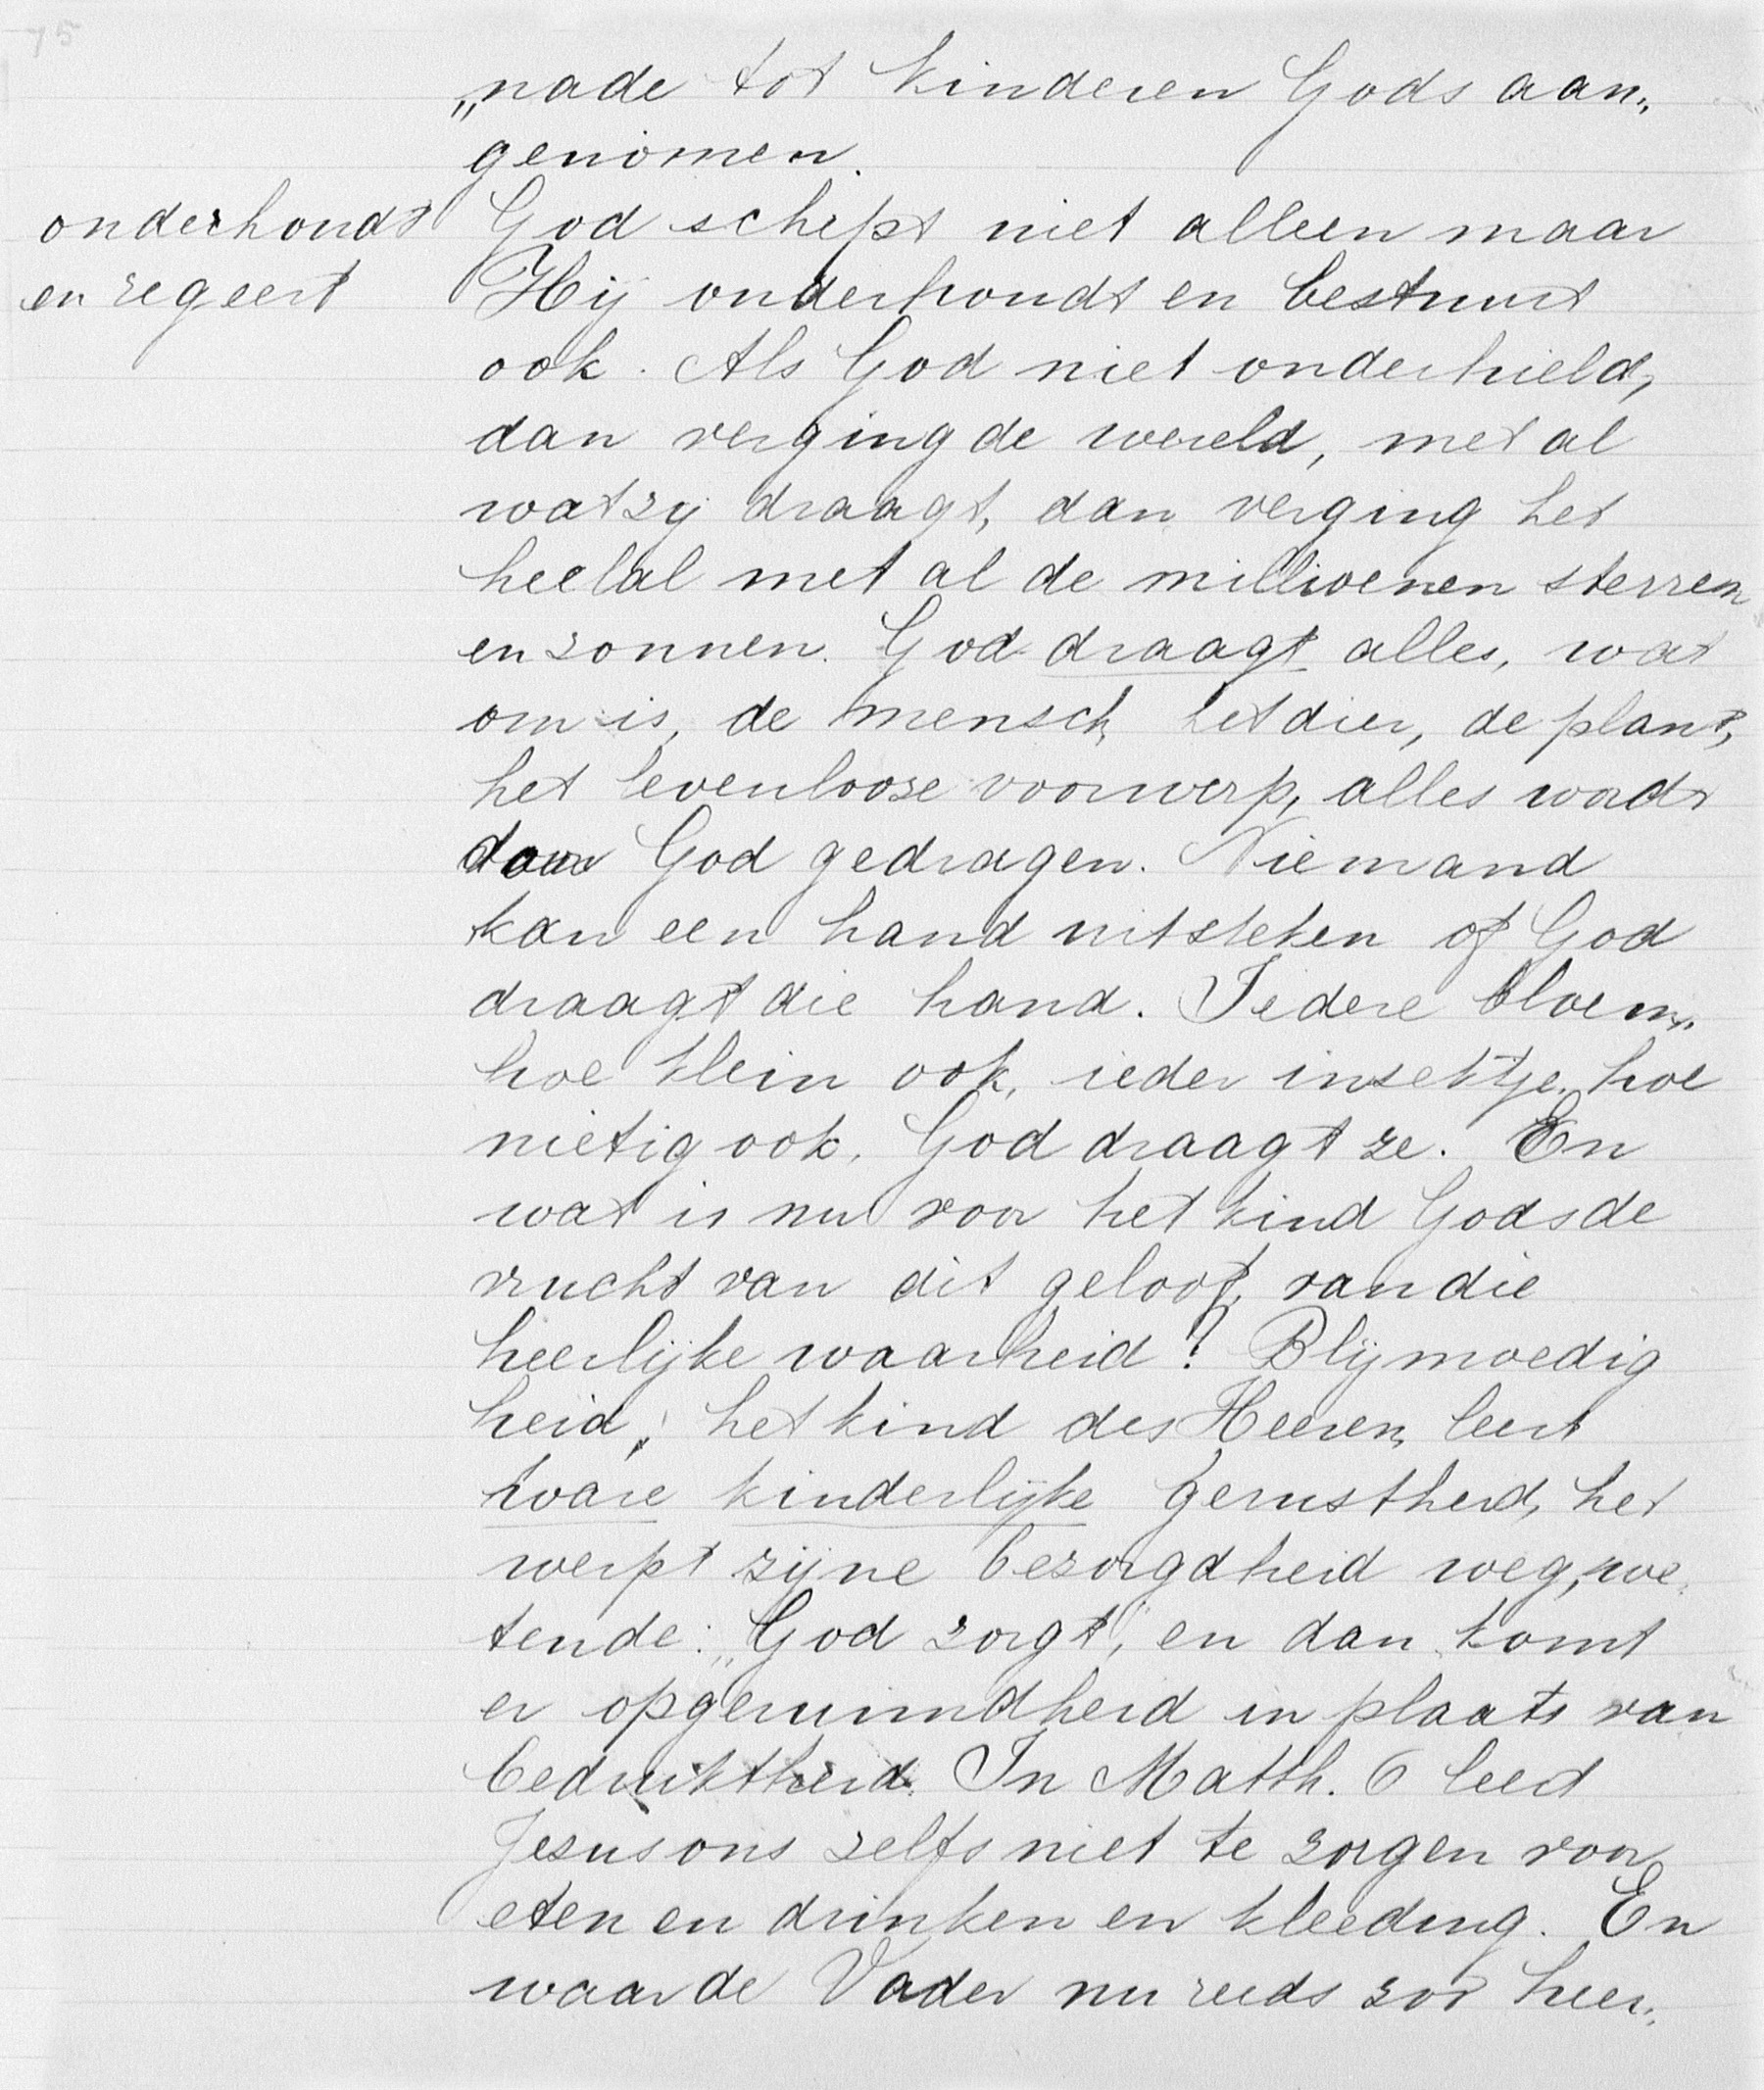 75
„nade tot kinderen Gods aan„
genomen.
onderhoudt
en regeert
God schept niet alleen maar
Hij onderhoudt en bestuurt
ook. Als God niet onderhield,
dan verging de wereld, met al
wat zij draagt, dan verging het
heelal met al de millioenen sterren
en zonnen. God draagt alles, wat
om is, de mensch, het dier, de plant,
het levenlooze voorwerp, alles wordt
door God gedragen. Niemand
kan een hand uitsteken of God
draagt die hand. Iedere bloem,
hoe klein ook, ieder insektje, hoe
nietig ook, God draagt ze. En
wat is nu voor het kind Gods de
vrucht van dit geloof, van die
heerlijke waarheid? Blijmoedig
heid; het kind des Heeren, leert
ware kinderlijke gerustheid, het
werpt zijne bezorgdheid weg, we„
tende: „God zorgt," en dan komt
er opgeruimdheid in plaats van
bedruktheid. In Matth. 6 leert
Jezus ons zelfs niet te zorgen voor
eten en drinken en kleeding. En
waar de Vader nu reeds zoo heer„